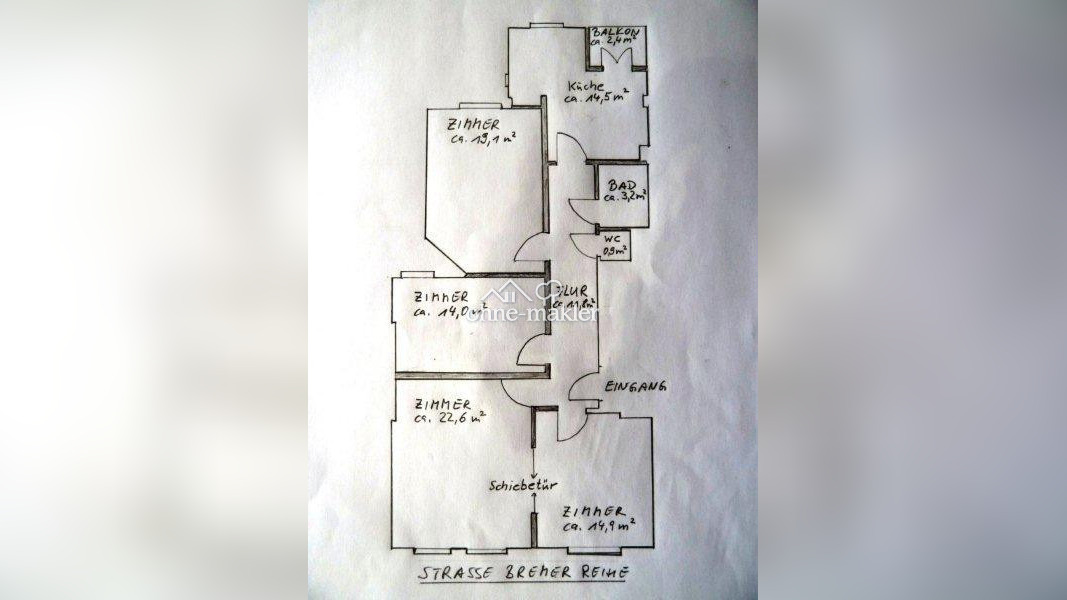 BALKON
ca. 2,4 m²
Küche
ca. 14,5 m²
ZIMMER
ca. 19,1 m²
BAD
ca. 3,2 m²
WC
0,9 m²
ZIMMER
ca. 14,0 m²
FLUR
ca. 11,8 m²
ohne-makler
EINGANG
ZIMMER
ca. 22,6 m²
Schiebetür
ZIMMER
ca. 14,9 m²
STRASSE BREMER REIHE